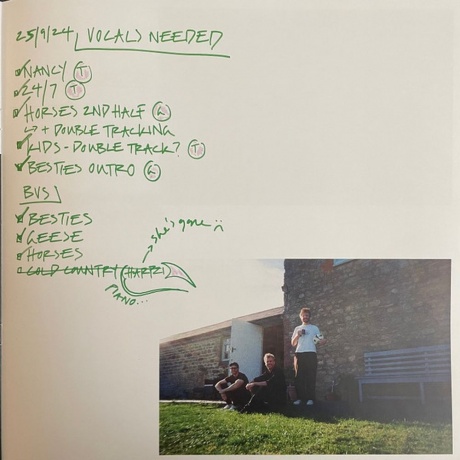 25/9/24 VOCALS NEEDED
NANCY T
24/7 T
HORSES 2ND HALF L
↳ + DOUBLE TRACKING
KIDS - DOUBLE TRACK? T
BESTIES OUTRO L
BVS
BESTIES
GEESE
HORSES
COLD COUNTRY (HARRI)
she's gone :(
PIANO...